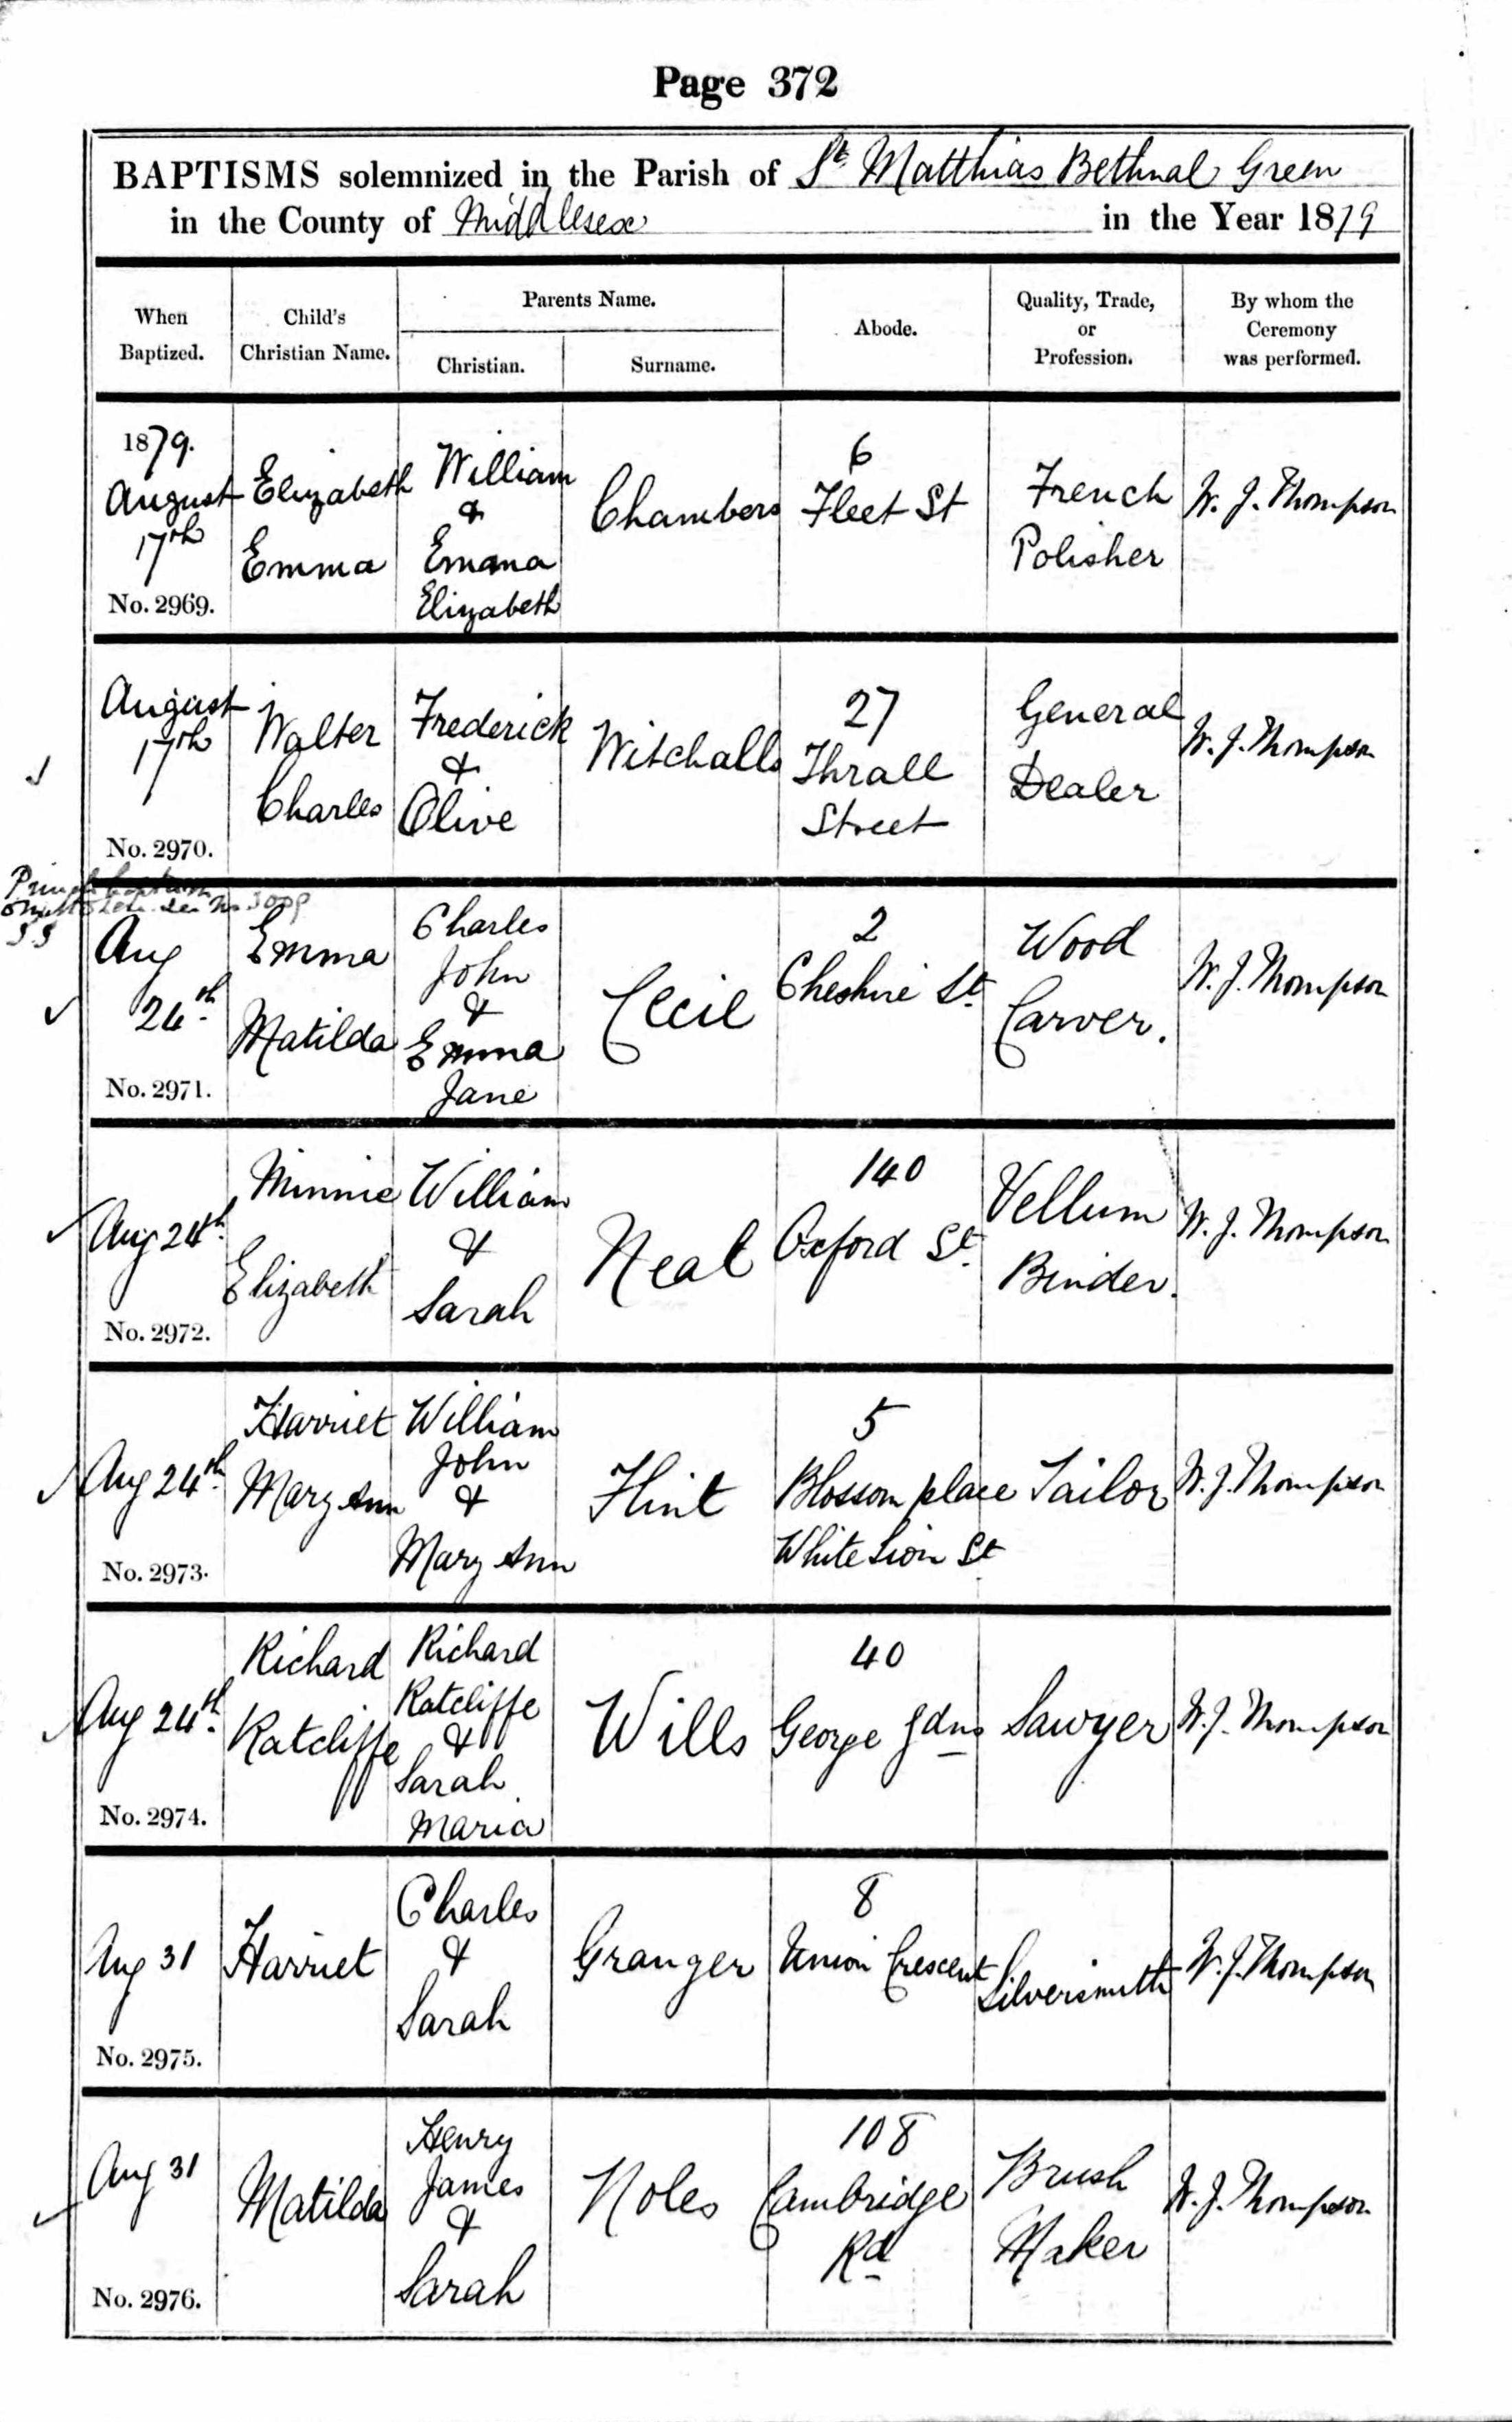 Page 372
BAPTISMS solemnized in the Parish of St Matthias Bethnal Green
in the County of Middlesex in the Year 1879
When Baptized.
Child's Christian Name.
Parents Name.
Christian.
Surname.
Abode.
Quality, Trade, or Profession.
By whom the Ceremony was performed.
1879.
August
17th
No. 2969.
Elizabeth
Emma
William
&
Emma
Elizabeth
Chambers
6
Fleet St
French
Polisher
W. J. Thompson
August
17th
No. 2970.
Walter
Charles
Frederick
&
Olive
Witchalls
27
Thrall
Street
General
Dealer
W. J. Thompson
see No
Aug
24th
No. 2971.
Emma
Matilda
Charles
John
&
Emma
Jane
Cecil
2
Cheshire St
Wood
Carver.
W. J. Thompson
Aug 24th
No. 2972.
Minnie
Elizabeth
William
&
Sarah
Neal
140
Oxford St
Vellum
Binder.
W. J. Thompson
Aug 24th
No. 2973.
Harriet
Mary Ann
William
John
&
Mary Ann
Flint
5
Blossom place
White Lion St
Tailor
W. J. Thompson
Aug 24th
No. 2974.
Richard
Ratcliffe
Richard
Ratcliffe
&
Sarah
Maria
Wills
40
George Gdns
Sawyer
W. J. Thompson
Aug 31
No. 2975.
Harriet
Charles
&
Sarah
Granger
8
Union Crescent
Silversmith
W. J. Thompson
Aug 31
No. 2976.
Matilda
Henry
James
&
Sarah
Noles
108
Cambridge
Rd
Brush
Maker
W. J. Thompson